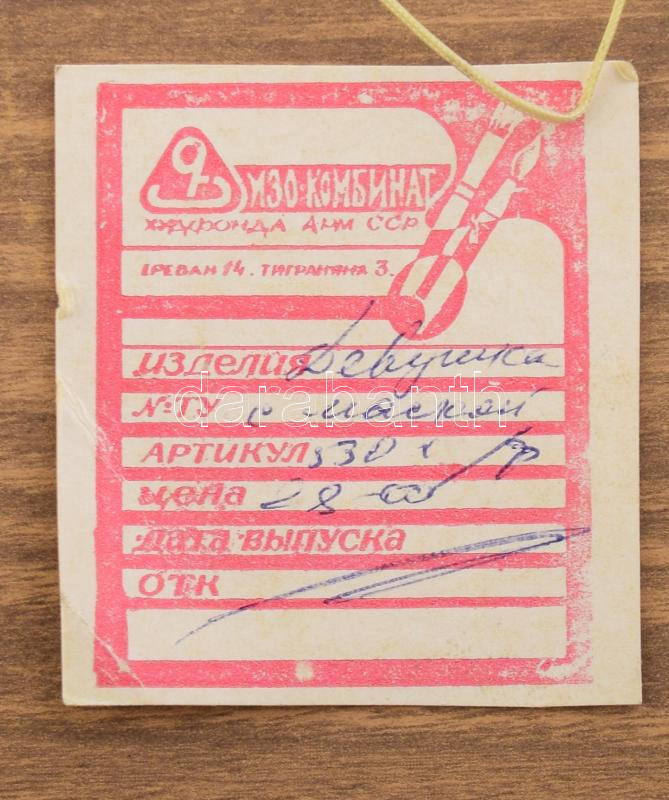 ИЗО-КОМБИНАТ
ХУДФОНДА АРМ ССР
ЕРЕВАН 14. ТИГРАНЯНА 3.
ИЗДЕЛИЯ Девушка
№ ТУ с маской
darabanth
АРТИКУЛ 330
цена 28-00
дата выпуска
ОТК